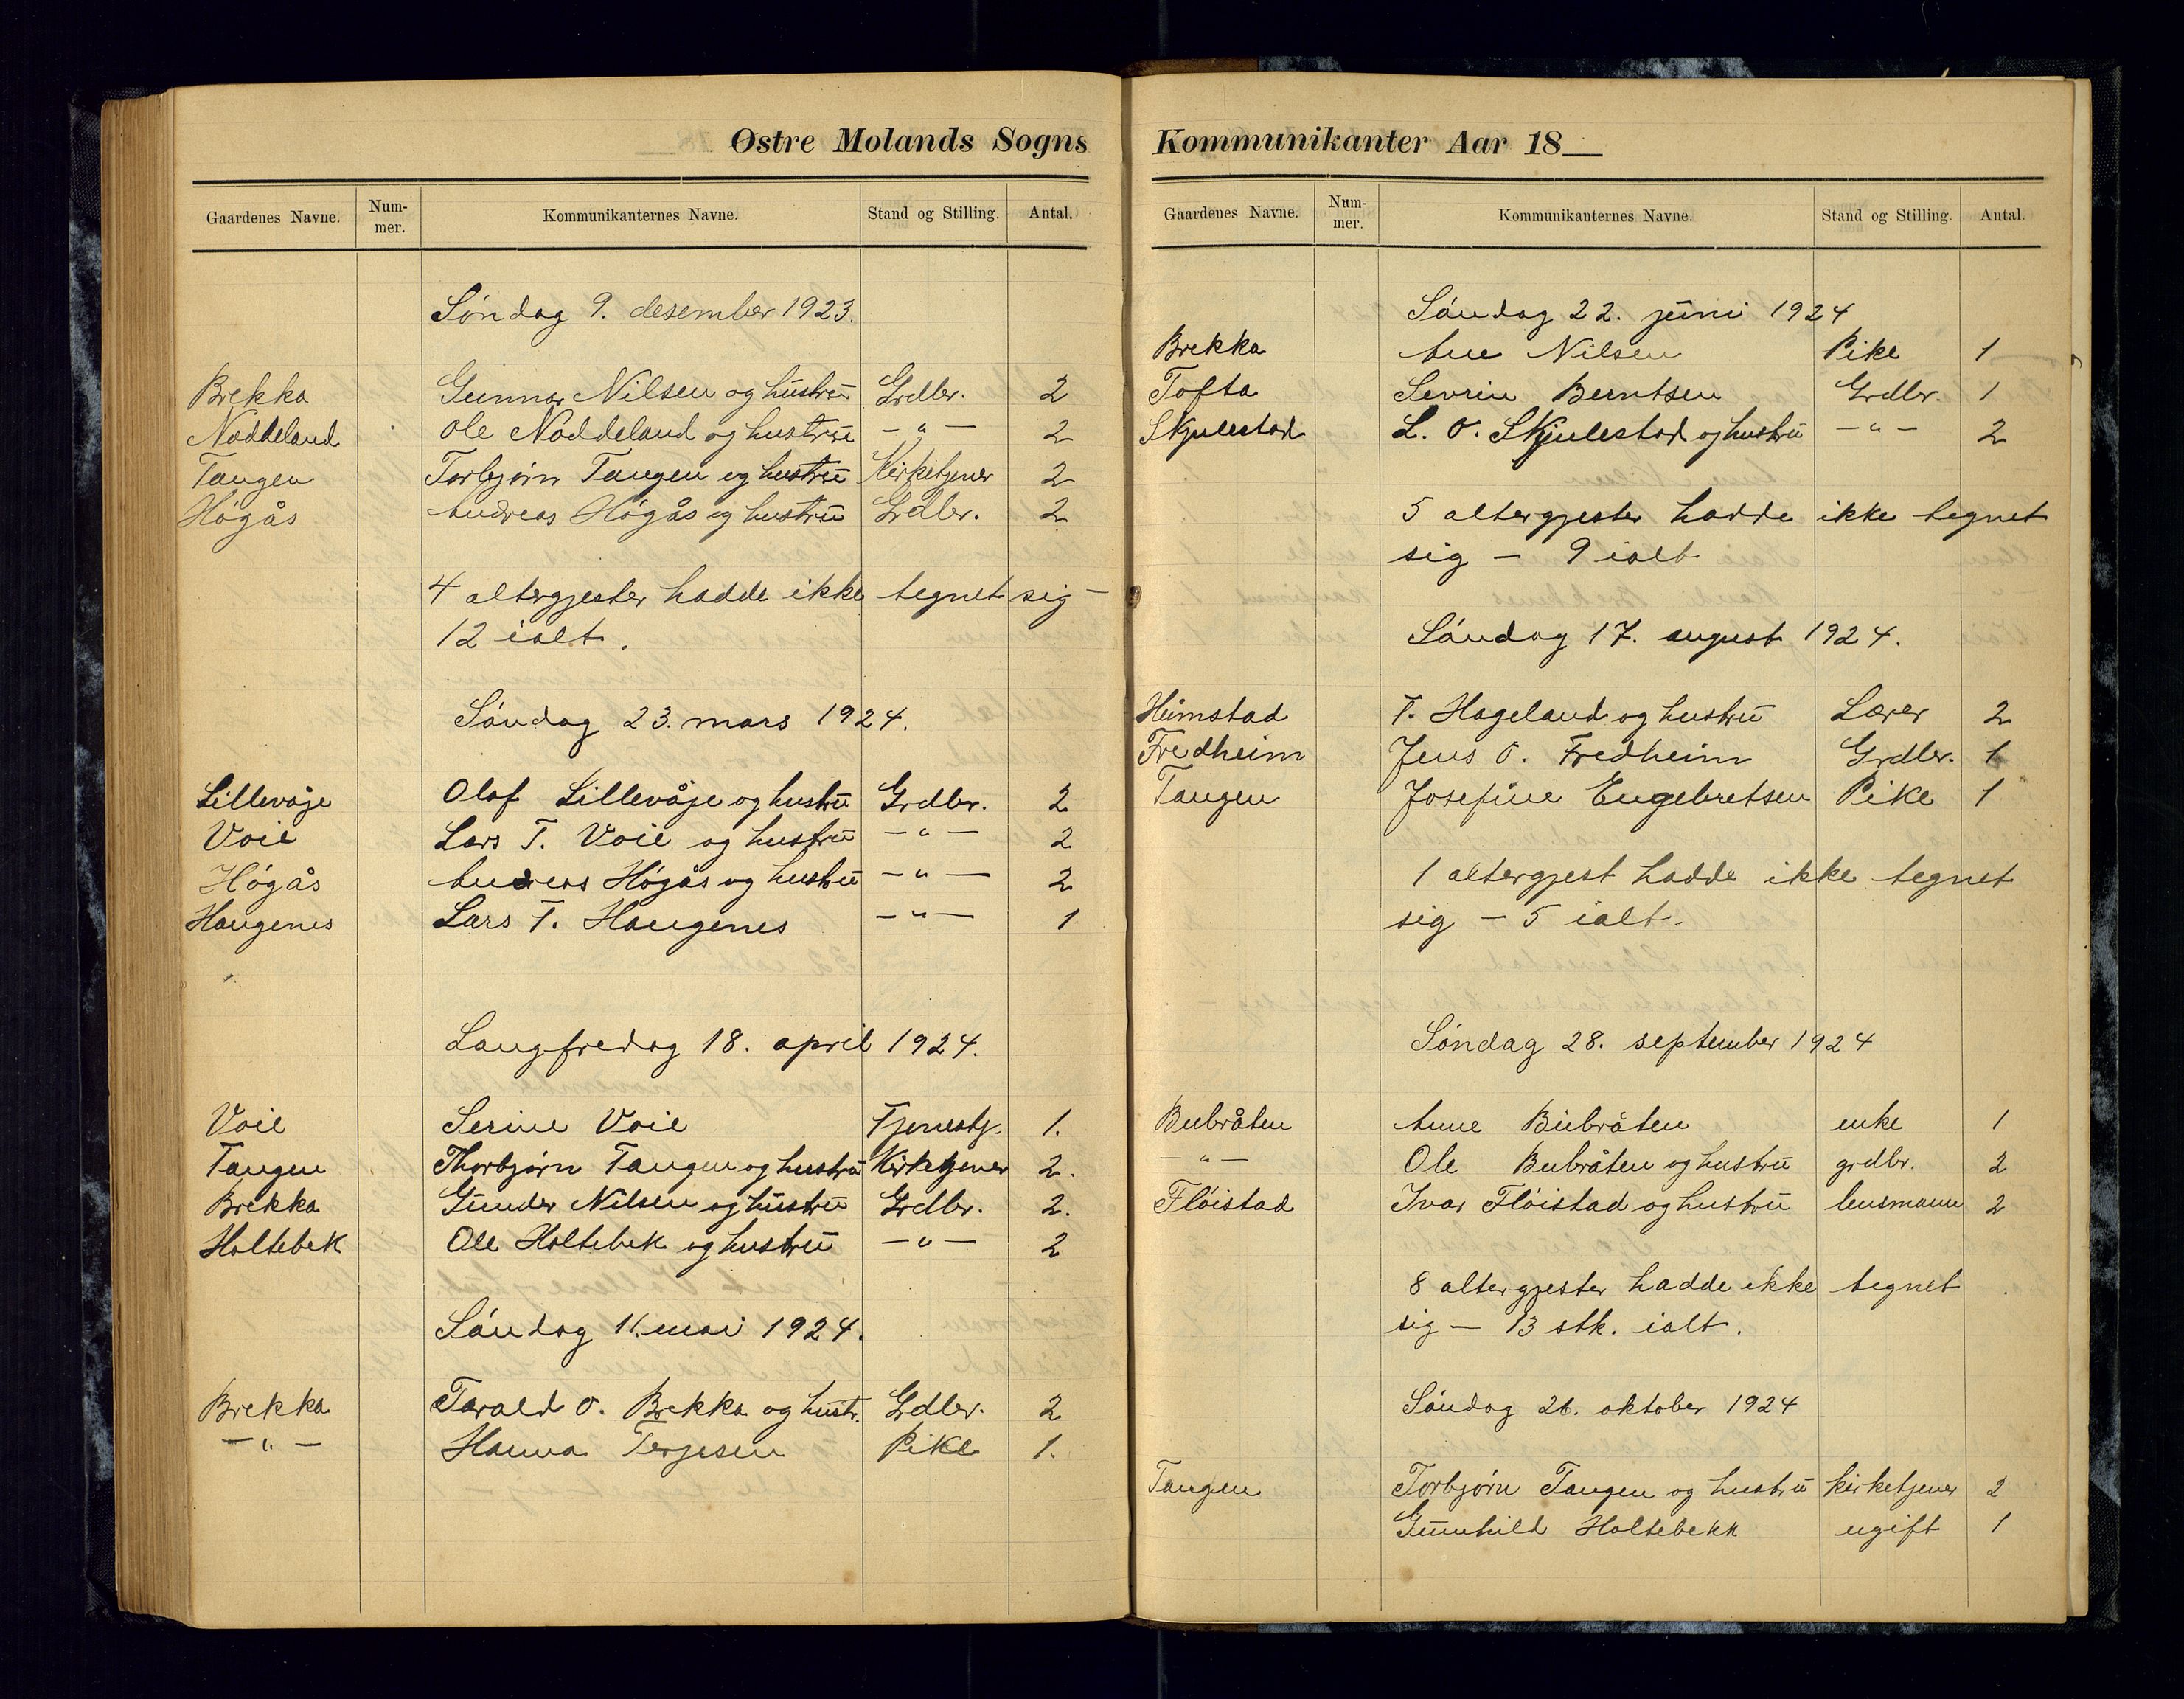 Østre Molands Sogns
Gaardenes Navne. Num-mer. Kommunikanternes Navne. Stand og Stilling. Antal.
Søndag 9. desember 1923.
Brekka Gunnar Nilsen og hustru Grdbr. 2
Noddeland Ole Noddeland og hustru -"- 2
Tangen Torbjørn Tangen og hustru Kirketjener 2
Høgås Andreas Høgås og hustru Grdbr. 2
4 altergjester hadde ikke tegnet sig –
12 ialt.
Søndag 23. mars 1924.
Lillevåje Olaf Lillevåje og hustru Grdbr. 2
Voie Lars T. Voie og hustru -"- 2
Høgås Andreas Høgås og hustru -"- 2
Haugenes Lars T. Haugenes -"- 1
Langfredag 18. april 1924.
Voie Serine Voie Tjenestp. 1.
Tangen Thorbjørn Tangen og hustru Kirketjener 2.
Brekka Gunder Nilsen og hustru Grdbr. 2.
Holtebek Ole Holtebek og hustru -"- 2
Søndag 11. mai 1924.
Brekka Tarald O. Brekka og hustr. Grdbr. 2
-"- Hanna Terjesen Pike 1.
Kommunikanter Aar 18__
Gaardenes Navne. Num-mer. Kommunikanternes Navne. Stand og Stilling. Antal.
Søndag 22. juni 1924
Brekka Ane Nilsen Pike 1
Tofta Sevrin Berntsen Grdbr. 1
Skjulestad L. O. Skjulestad og hustru -"- 2
5 altergjester hadde ikke tegnet
sig – 9 ialt
Søndag 17. august 1924.
Humstad T. Hageland og hustru Lærer 2
Fredheim Jens O. Fredheim Grdbr. 1
Tangen Josefine Engebretsen Pike 1
1 altergjest hadde ikke tegnet
sig – 5 ialt.
Søndag 28. september 1924
Bubråten Anne Bubråten enke 1
-"- Ole Bubråten og hustru grdbr. 2
Fløistad Ivar Fløistad og hustru lensmann 2
8 altergjester hadde ikke tegnet
sig – 13 stk. ialt.
Søndag 26. oktober 1924
Tangen Torbjørn Tangen og hustru kirketjener 2
Gunnhild Holtebekk ugift 1